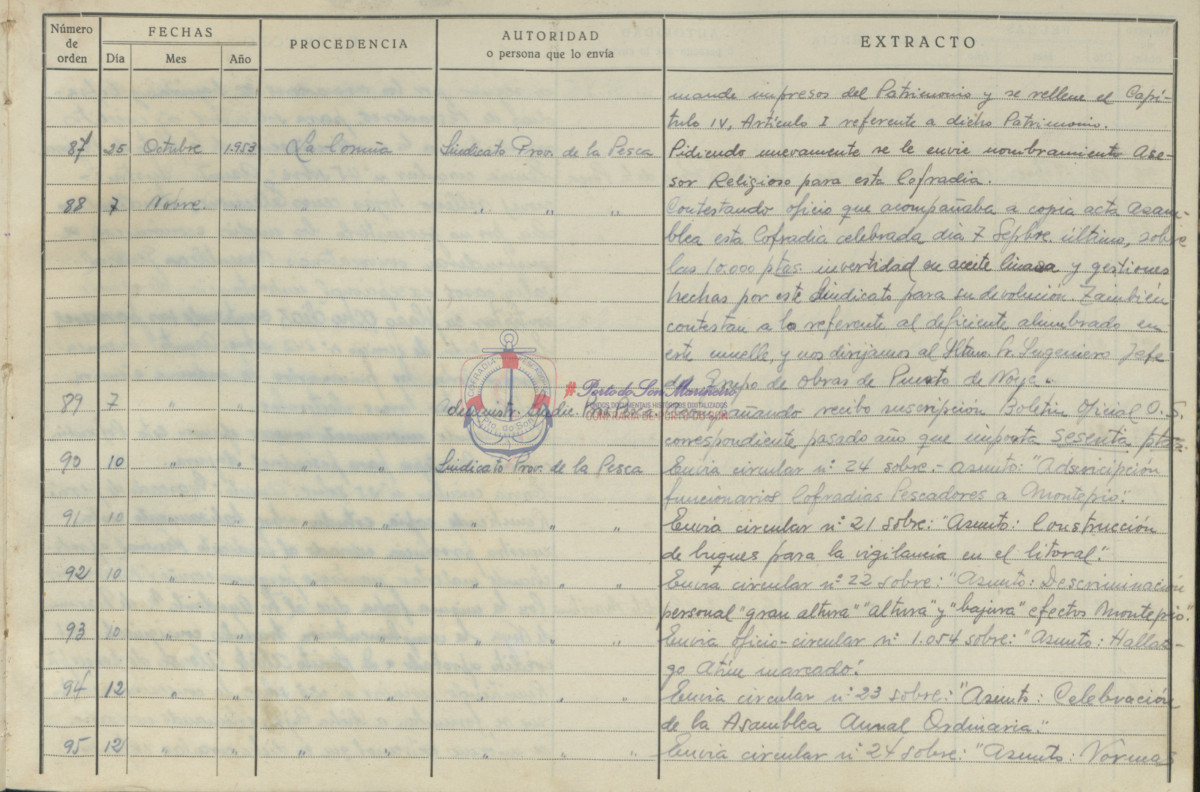 Número de orden FECHAS PROCEDENCIA AUTORIDAD o persona que lo envía EXTRACTO
Día Mes Año
mande impresos del Patrimonio y se rellene el Capí-
tulo IV, Artículo I referente a dicho Patrimonio.
87 25 Octubre 1.953 La Coruña Sindicato Prov. de la Pesca Pidiendo nuevamente se le envie nombramiento Ase-
sor Religioso para esta Cofradia.
88 7 Nobre. " " " " " Contestando oficio que acompañaba a copia acta Asam-
blea esta Cofradia celebrada dia 7 Sepbre. último, sobre
las 10.000 ptas. invertidad en aceite linaza y gestiones
hechas por este Sindicato para su devolución. También
contestan a la referente al deficiente alumbrado en
este muelle, y nos dirijamos al Iltmo. Sr. Ingeniero Jefe
del Grupo de obras de Puerto de Noya.
89 7 " " Pesca. Acompañando recibo suscripcion Boletin Oficial O.S.
correspondiente pasado año que importa sesenta ptas.
90 10 " " " " Sindicato Prov. de la Pesca Envia circular nº 24 sobre.- asunto: "Adscripción
funcionarios Cofradias Pescadores a Montepio".
91 10 " " " " " " " Envia circular nº 21 sobre: "Asunto: Construcción
de buques para la vigilancia en el litoral".
92 10 " " " " " " " Envia circular nº 22 sobre: "Asunto: Descriminación
personal "gran altura" "altura" y "bajura" efectos Montepio".
93 10 " " " " " " " Envia oficio-circular nº 1.054 sobre: "Asunto: Hallaz-
go Atún marcado".
94 12 " " " " " " " Envia circular nº 23 sobre: "Asunto: Celebración
de la Asamblea Anual Ordinaria".
95 12 " " " " " Envia circular nº 24 sobre: "Asunto: Normas
COFRADIA PESCADORES
Pto. do Son
#Porto do Son Mariñeiro
FONDOS DOCUMENTAIS HISTÓRICOS DIGITALIZADOS
CONFRARÍA DE PORTO DO SON